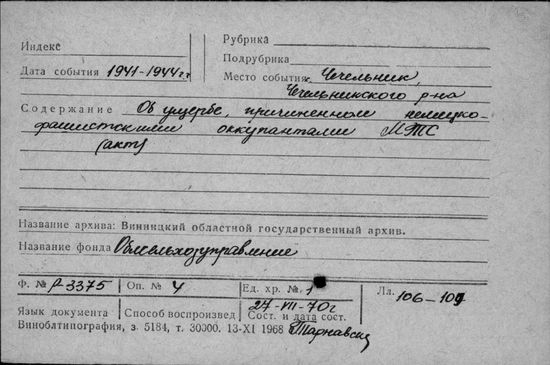 Индекс
Рубрика
Подрубрика
Дата события 1941-1944 г.г.
Место события г. Чечельник,
Чечельникского р-на
Содержание Об ущербе, причиненном немецко-
фашистскими оккупантами МТС
(акт)
Название архива: Винницкий областной государственный архив.
Название фонда Облсельхозуправление
Ф. № Р-3375 Оп. № 4 Ед. хр. № 1 Лл. 106-109
27-VII-70г
Язык документа Способ воспроизвед Сост. и дата сост.
Виноблтипография, з. 5184, т. 30000. 13-XI 1968